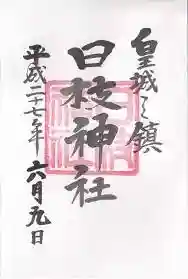 皇城之鎮
日枝神社
平成二十七年 六月九日